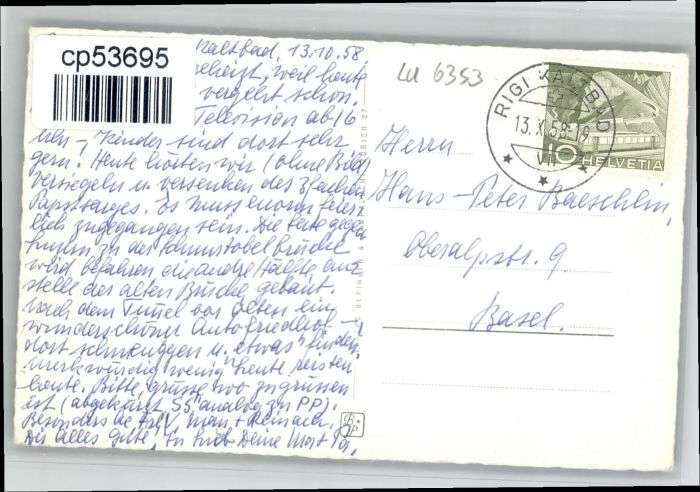 cp53695
Kaltbad, 13.10.58.
geheizt, weil heute
vergeht schon.
Television ab 16
Uhr - Kinder sind dort sehr
gern. Heute hörten wir (ohne Bild)
versiegeln u. versenken des 3fachen
Papstsarges. Es muss enorm feier-
lich zugegangen sein. Die
zu der brücke
wird befahren die andre Hälfte an
stelle der alten Brücke gebaut.
nach dem Tunnel vor Olten ein
wunderschöner Autofriedhof -
dort schneuggen u. "etwas" finden.
merkwürdig wenig heute reisten
heute. Bitte, grüsse wo zu grüssen
ist (abgekürzt "SS" analog zu PP).
Besonders
Dir alles Gute, Deine
LU 6353
RIGI KALTBAD
13. X. 58-18
10 HELVETIA
Herrn
Hans-Peter Baeschlin,
Oberalpstr. 9
Basel.